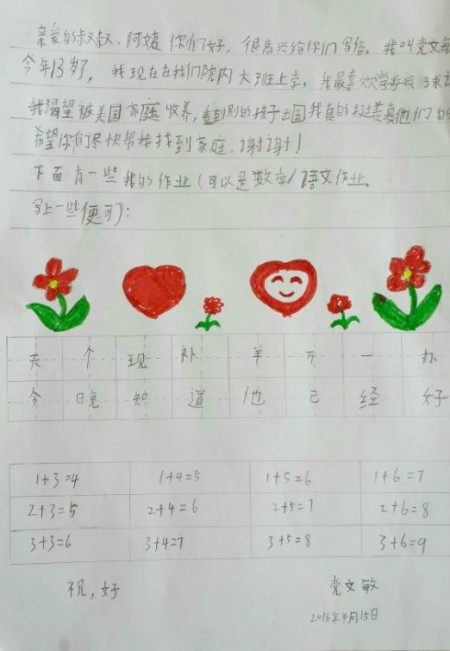 亲爱的叔叔、阿姨 你们好，很高兴给你们写信。我叫党文敏
今年13岁了，我现在在我们院内大班上学，我最喜欢学
我渴望被美国家庭收养，看到别的孩子出国我真的挺羡慕他们的
希望你们尽快帮我找到家庭，谢谢！
下面有一些我的作业（可以是数学/语文作业
写上一些便可）：
个 现 补 羊 一 办
今 晚 知 道 他 己 经 好
1+3=4 1+4=5 1+5=6 1+6=7
2+3=5 2+4=6 2+5=7 2+6=8
3+3=6 3+4=7 3+5=8 3+6=9
好 党文敏
2016年4月15日